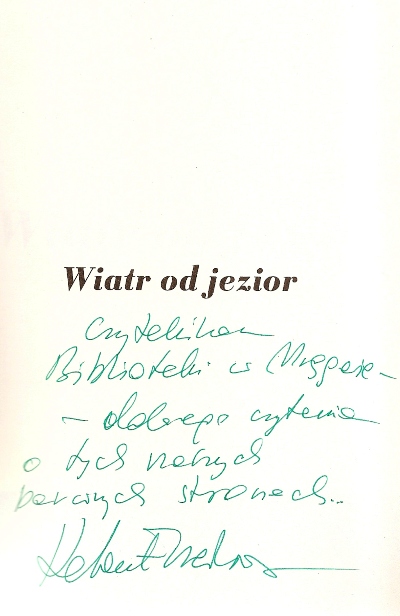 Wiatr od jezior
Czytelnikom
Biblioteki w Mrągowie -
- dobrego czytania
o tych naszych
stronach...